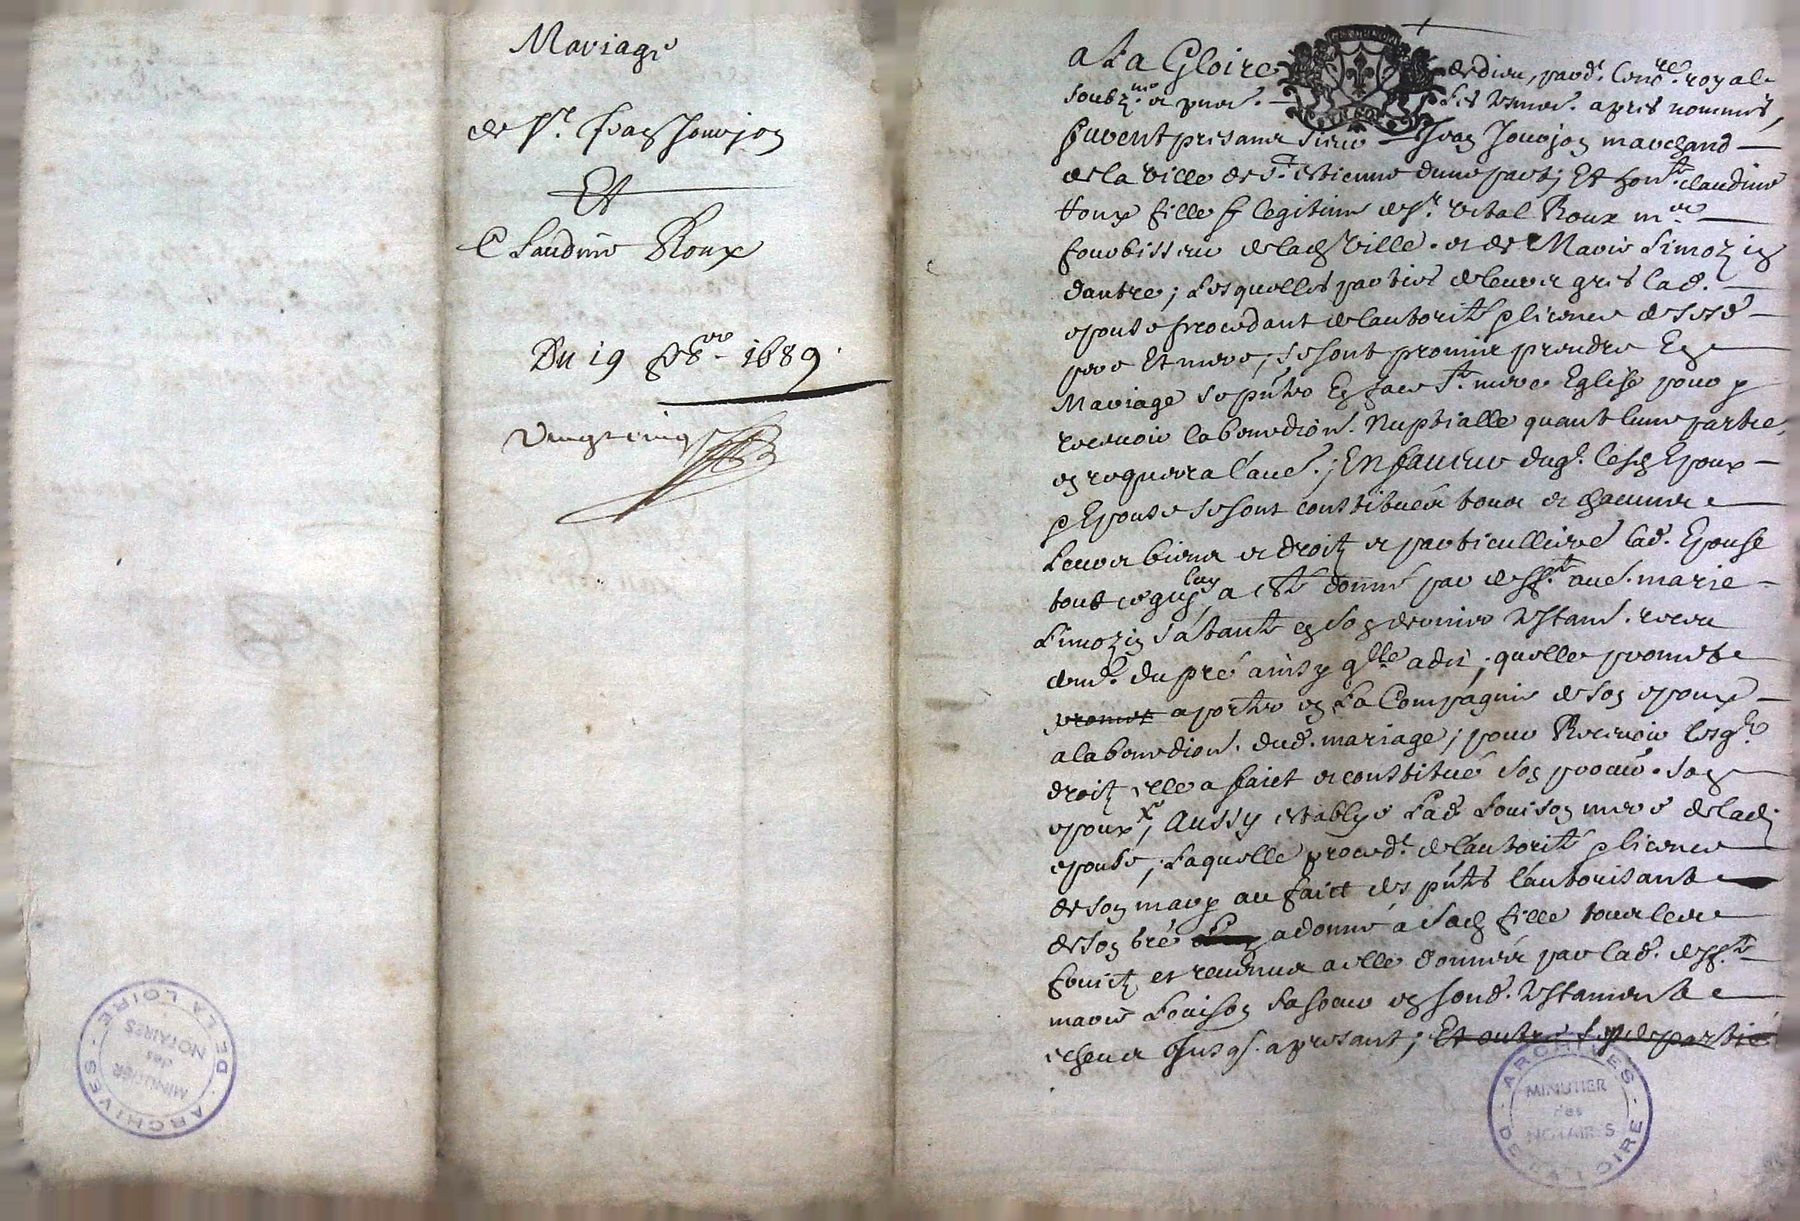 Mariage
de Sr. Jean Jouvjon
Et
Claudine Roux
Du 19 xbre 1689.
ARCHIVES DE LA LOIRE
MINUTIER
des
NOTAIRES
a La Gloire de dieu, pard. le nore. royal
soubz.ne et pnt. les tesmoi. apres nommés,
furent presans sieur Jean Jouvjon marchand
de la ville de St. estienne dune part; Et honte. claudine
Roux fille legitime de Sr. vital Roux me.
fourbisseur de lad. ville. et de Marie Limozin
dautre; Lesquelles parties de leur gres lad.
epouse procedant de lautorité licence de sesd.
pere Et mere; se sont promis prendre En
Mariage se pnter En face Ste. mere Eglise pour
recevoir la benedion. Nuptialle quant lune partie
en requerra l'autre.; En faveur duql. lesd. Epoux
Epouse se sont constitués tous et chacuns
Leurs biens et droitz et particullière lad. Epouse
tout ce qui luy a esté donné par deffte. aud. marie
Limozin sa tante en son dernier testam. receu
dud. dupré ainsy qlle a dit; quelle promet
promet aporter en La Compagnie de son epoux
a la benedion. dud. mariage; pour Recevoir lesql.
droitz elle a faict et constitué son procur. son
epoux; Aussy establye Lad. Louison mere de lad.
epouse; Laquelle proced. de l'autorité licence
de son mary au faict des pntes l'autorisant
de son gré a donné a sad. fille tous les
fruitz et revenus a elle donnés par lad. deffte.
marie Louison sa soeur en sond. testament
echeus Jusq. apresant; Et outre
ARCHIVES DE LA LOIRE
MINUTIER
des
NOTAIRES